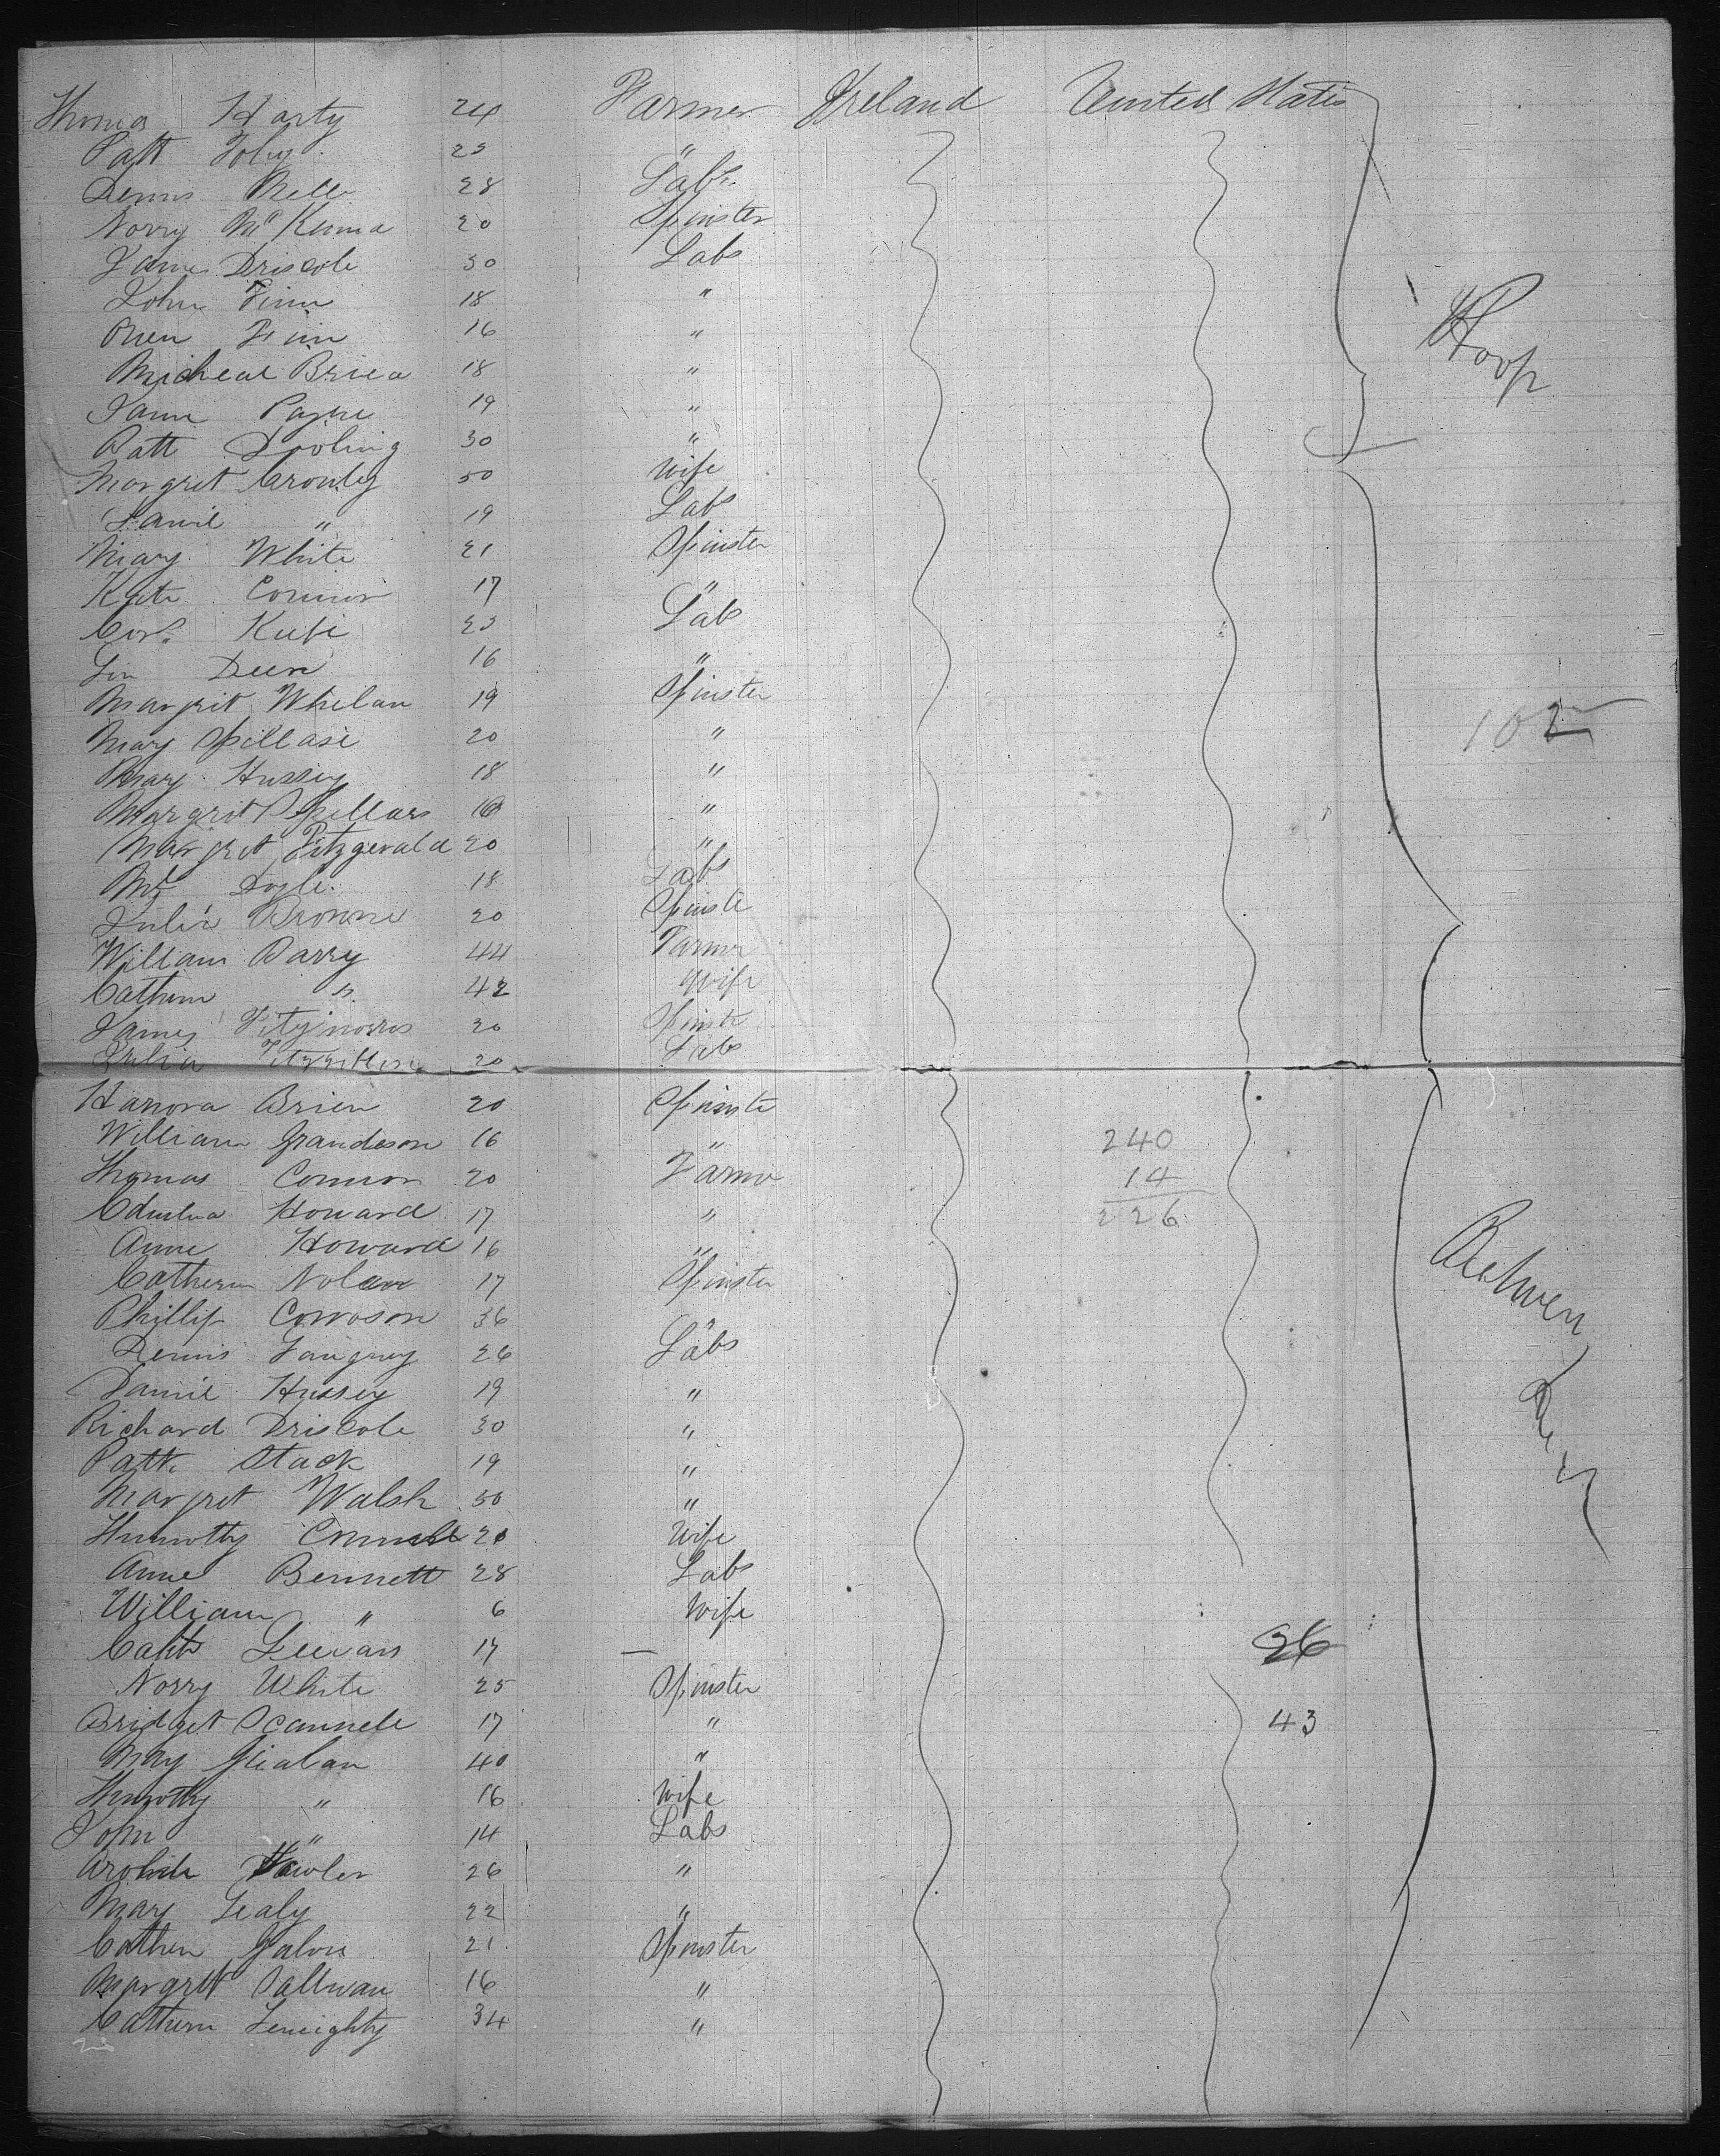 Thomas Harty 24 Farmer Ireland United States
Patt Foley 23 "
Dennis Nelle 28 Labr.
Norry McKenna 20 Spinster
James Driscole 30 Labs
John Finn 18 "
Owen Finn 16 "
Micheal Briea 18 "
Payne 19 "
Patt Dooling 30 "
Margret Crowley 50 Wife
Daniel " 19 Lab
Mary White 21 Spinster
Kate Connor 17 "
Cors. Kiefe 23 Lab
16 "
Margrit Whelan 19 Spinster
Mary Spillasi 20 "
Mary Hussey 18 "
Margrit Spillars 16 "
Margret Fitzgerald 20 "
Doyle 18 Labs
Julia Browne 20 Spinste
William Barry 44 Farmer
Cathern " 42 Wife
James 20 Spinste
Julia 20 Labs
Hanora Brien 20 Spinste
William Grandeson 16 "
Thomas Connor 20 Farmer
Howard 17 "
Anne Howard 16 "
Cathern Nolan 17 Spinster
Phillip Corroson 36 "
Dennis 26 Labs
Daniel Hussey 19 "
Richard Driscole 30 "
Patk Stack 19 "
Margret Walsh 50 "
Thimothy 20 Wife
Anne Bennett 28 Labs
William " 6 Wife
17 —
Norry White 25 Spinster
Bridget Scannele 17 "
May 40 "
Thimothy " 16 Wife
John " 14 Labs
26 "
Mary Lealy 22 "
Cathern 21 Spinster
Margret 16 "
Cathern 34 "
Hoop
102
240
14
226
Between
Decks
26
43